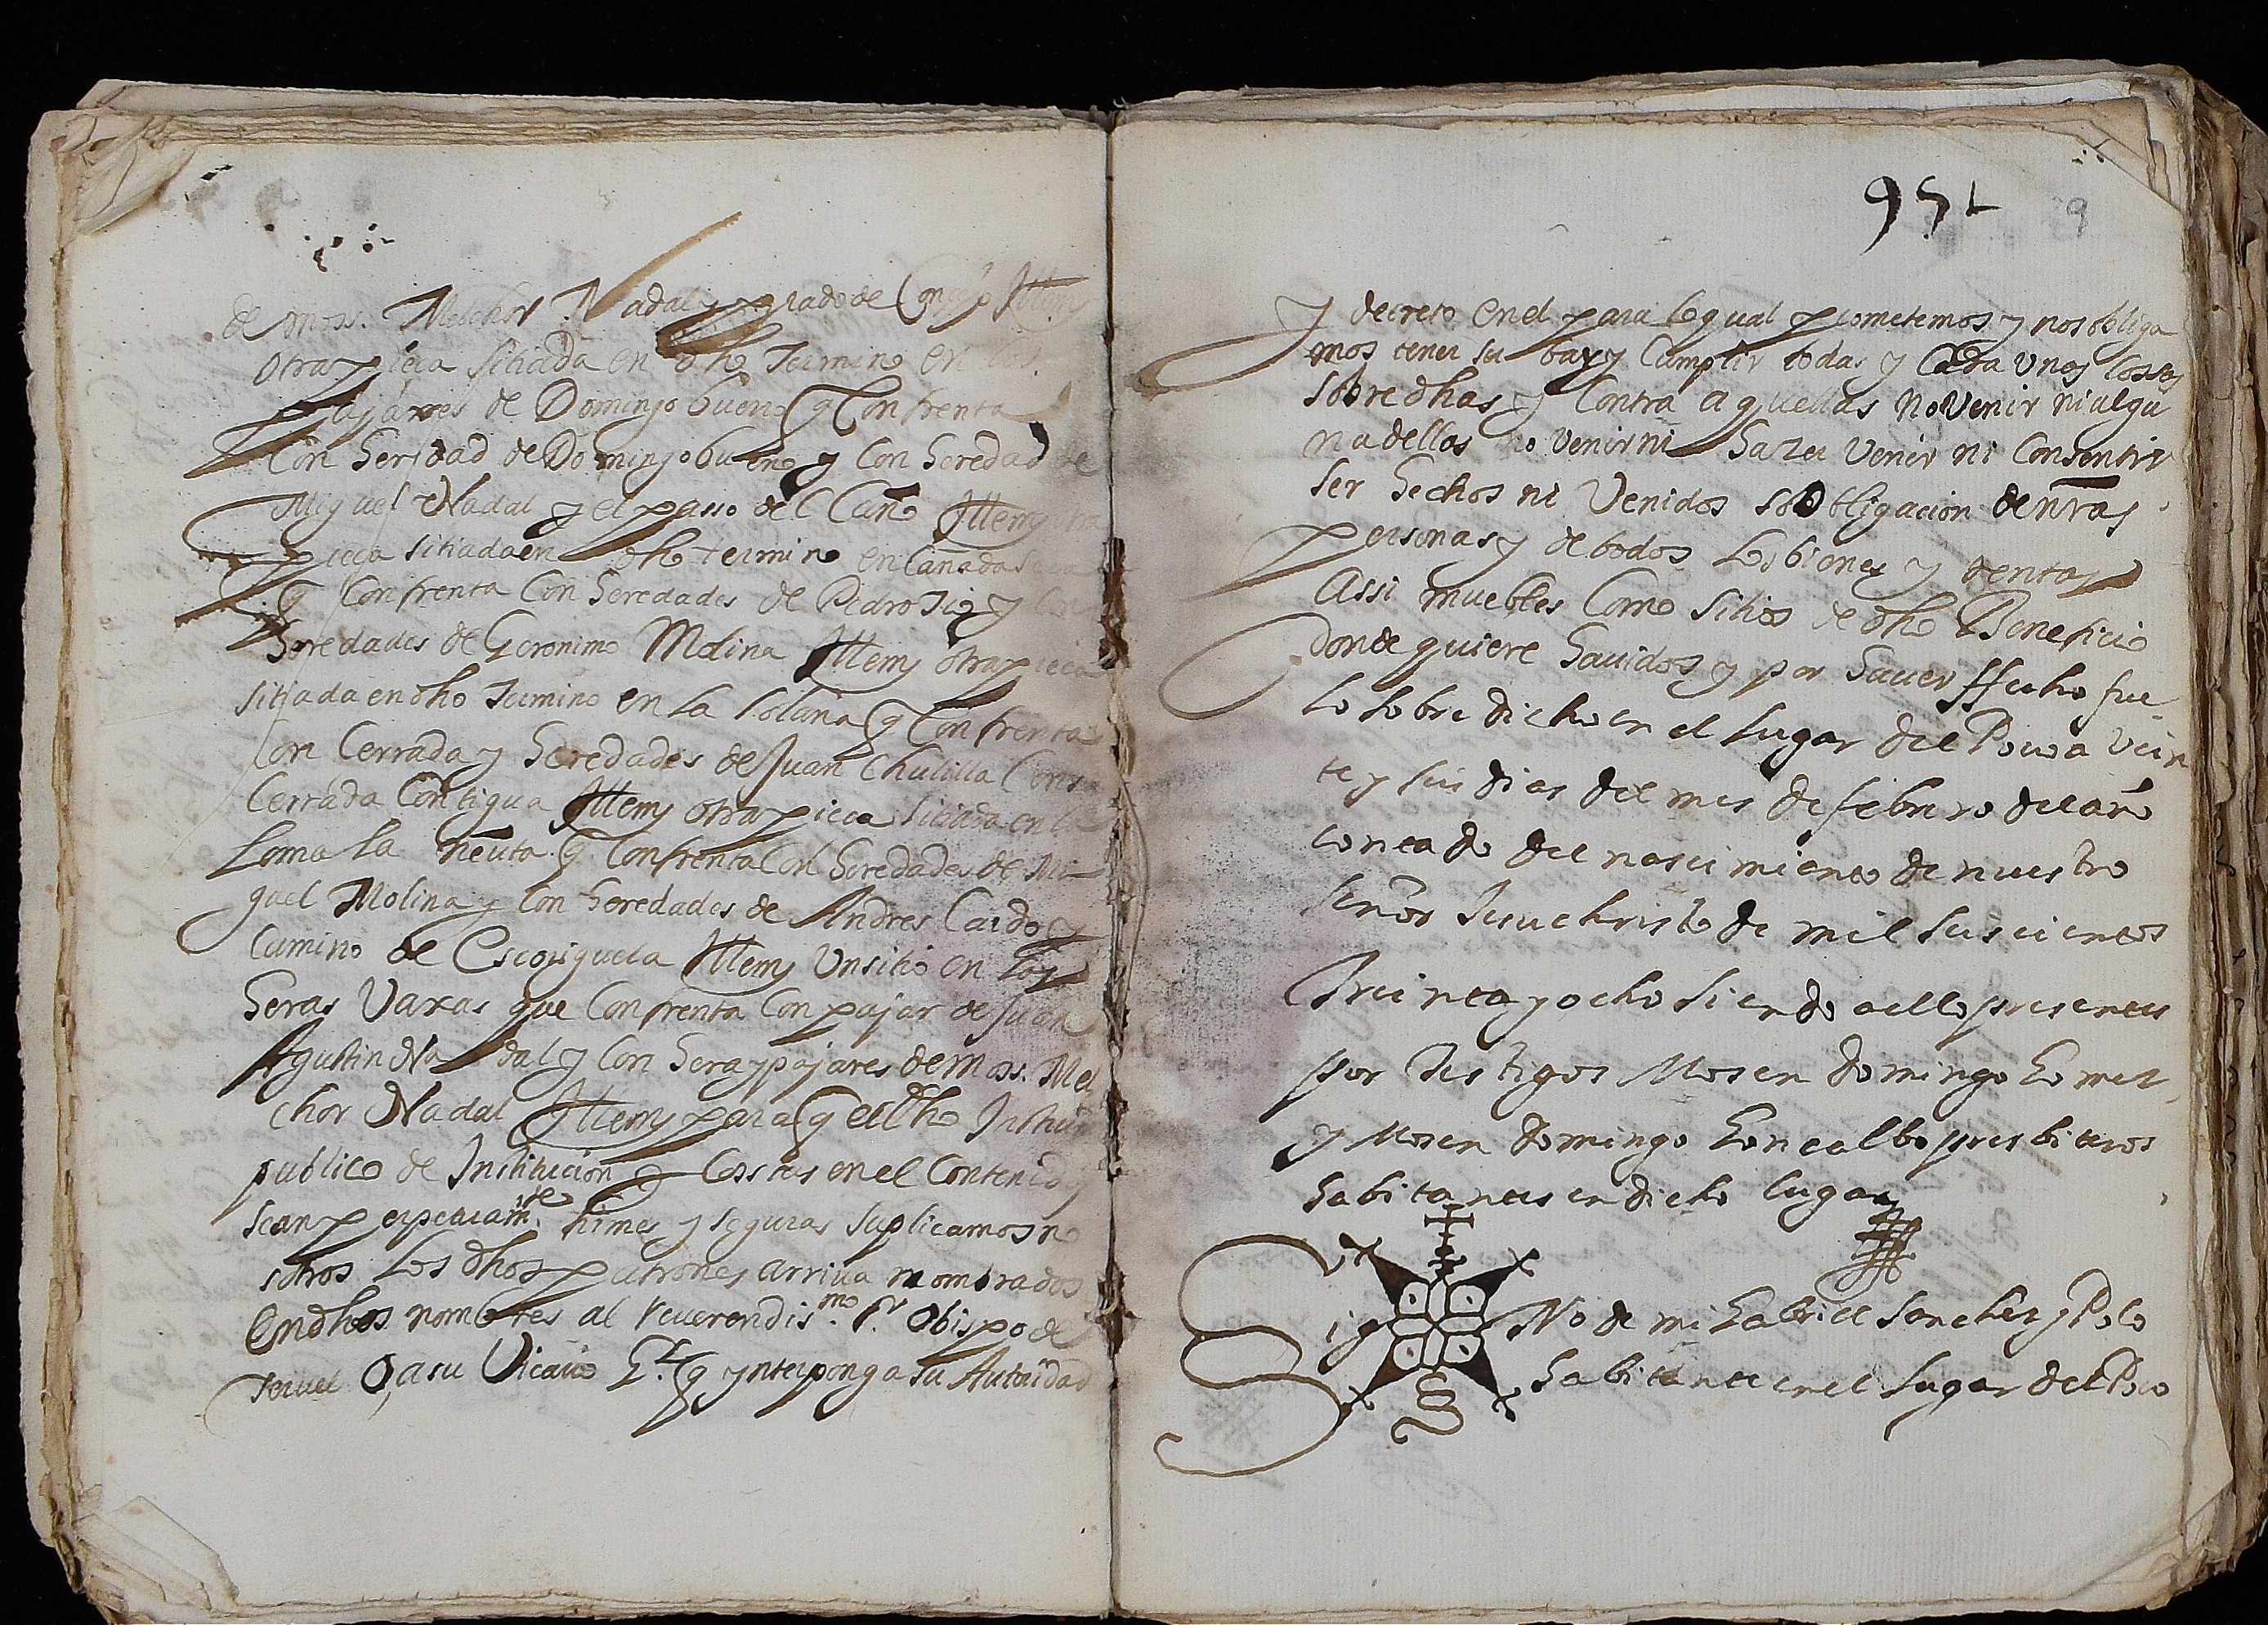 de moss. Melchor Nadal y prado de Concejo Ittem
otra pieça sitiada en dho Termino en los
pajares de Domingo bueno q Confrenta
Con heredad de Domingo bueno y Con heredad de
Miguel Nadal y el passo del Caño Ittem otra
pieça sitiada en dho termino en Cañada Seca
q Confrenta Con heredades de Pedro Jil y Con
heredades de Geronimo Molina Ittem otra pieca
sitiada en dho Termino en la solana q Confrenta
Con Cerrada y heredades de Juan Chulilla Con
Cerrada Contigua Ittem otra pieca Sitiada en la
Loma la q Confrenta Con heredades de Mi
guel Molina y Con heredades de Andres Caido y
Camino de Escorigueta Ittem Un sitio en las
heras Vaxas que Confrenta Con pajar de Juan
Agustin Nadal y Con hera y pajares de moss. Mel
chor Nadal Ittem para q el dho Instru
publico de Institucion y Cossas en el Contenidas
sean perpetuamte. firmes y seguras suplicamos no
sotros Los dhos patrones arriua nombrados
En dhos nombres al reuerendismo. Sr. Obispo de
Teruel O, a su Vicario Gl. q ynterponga su Autoridad
951 9
y decreto en el para lo qual prometemos y nos obliga
mos tener seruar y Cumplir todas y Cada Unas cossas
sobredhas y Contra aquellas no venir ni algu
na dellas no venir ni hazer venir ni Consentir
ser hechos ni Venidos so obligacion de nras
personas y de todos los bienes y rentas
Assi muebles Como sitios de dho Beneficio
donde quiere hauidos y por hauer ffecho fue
lo sobre dicho en el lugar del Pouo a vein
te y seis dias del mes de febrero del año
contado del nascimiento de nuestro
señor Jesuchristo de mil seiscientos
Treinta y ocho siendo a ello presentes
por testigos Mosen Domingo Gomez
y Mosen Domingo Goncalbo presbiteros
habitantes en dicho lugar
Sig No de mi Gabriel Sanchez y Polo
habitante en el lugar del Pouo